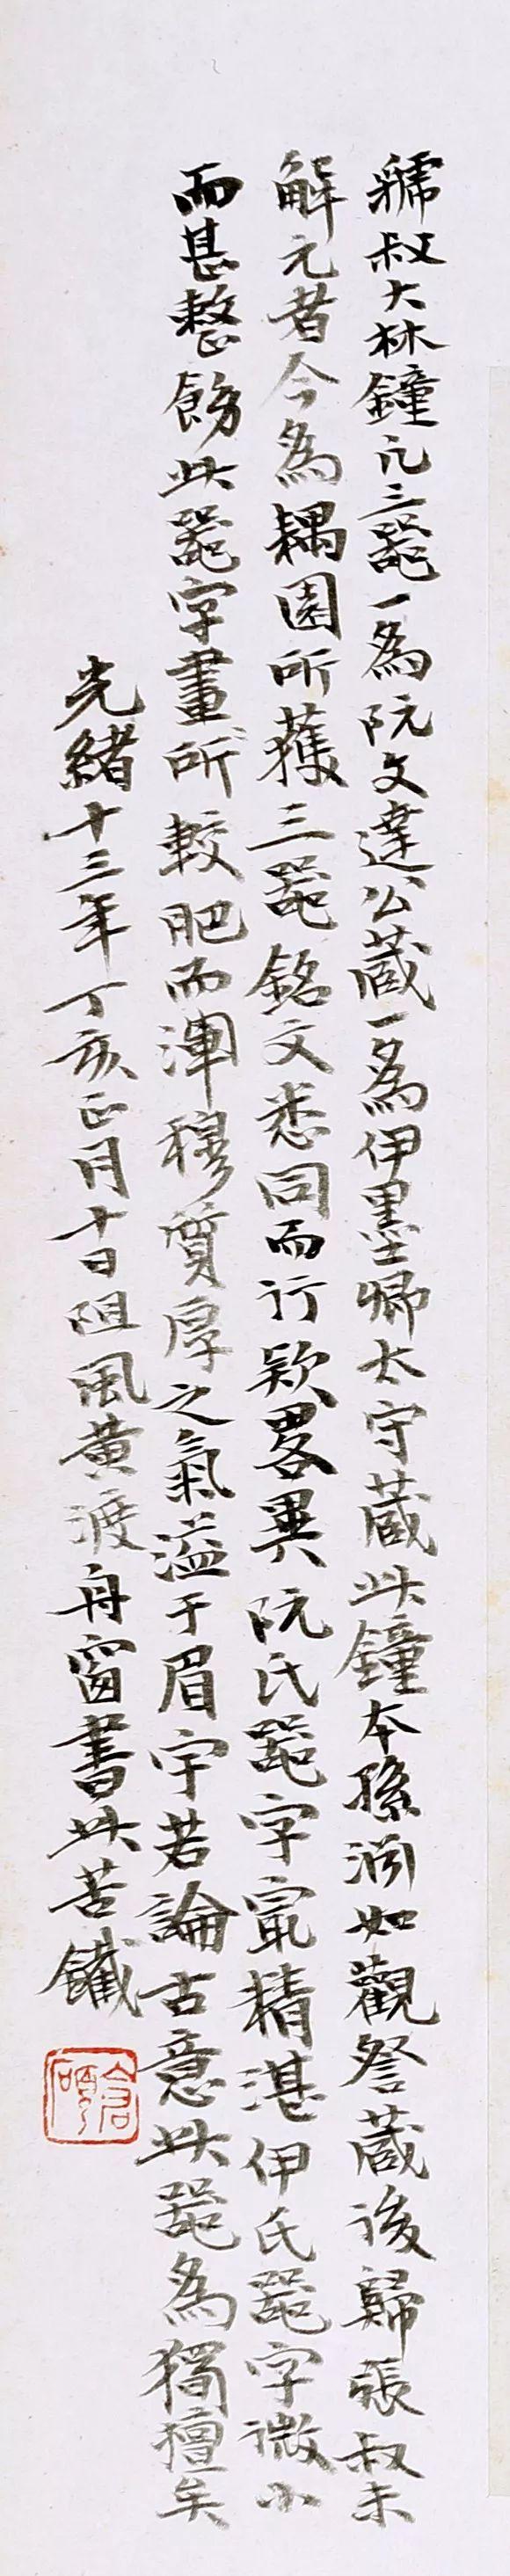 虢叔大林鐘凡三器一為阮文達公蔵一為伊墨卿太守蔵此鐘本孫淵如觀詧蔵後歸張叔未
解元者今為耦園所獲三器銘文悉同而行款畧異阮氏器字㝡精湛伊氏器字微小
而甚整飭此器字畫所較肥而渾穆質厚之氣溢于眉宇若論古意此器為獨擅矣
光緒十三年丁亥正月十日阻風黄渡舟窗書此苦鐵
倉碩